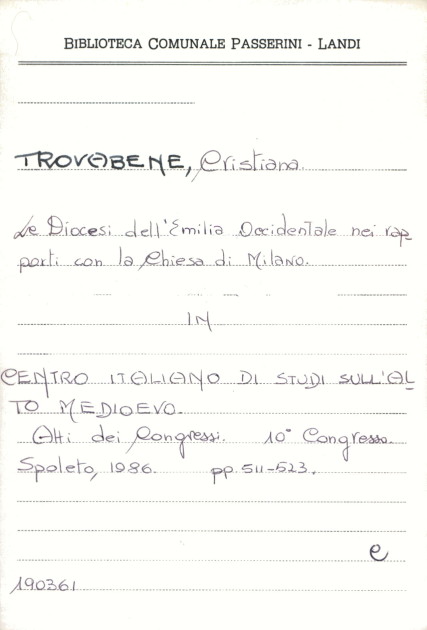 BIBLIOTECA COMUNALE PASSERINI - LANDI
TROVABENE, Cristiana.
Le Diocesi dell'Emilia Occidentale nei rap-
porti con la Chiesa di Milano.
IN
CENTRO ITALIANO DI STUDI SULL'AL-
TO MEDIOEVO.
Atti dei Congressi. 10° Congresso.
Spoleto, 1986. pp. 511-523.
e
190361